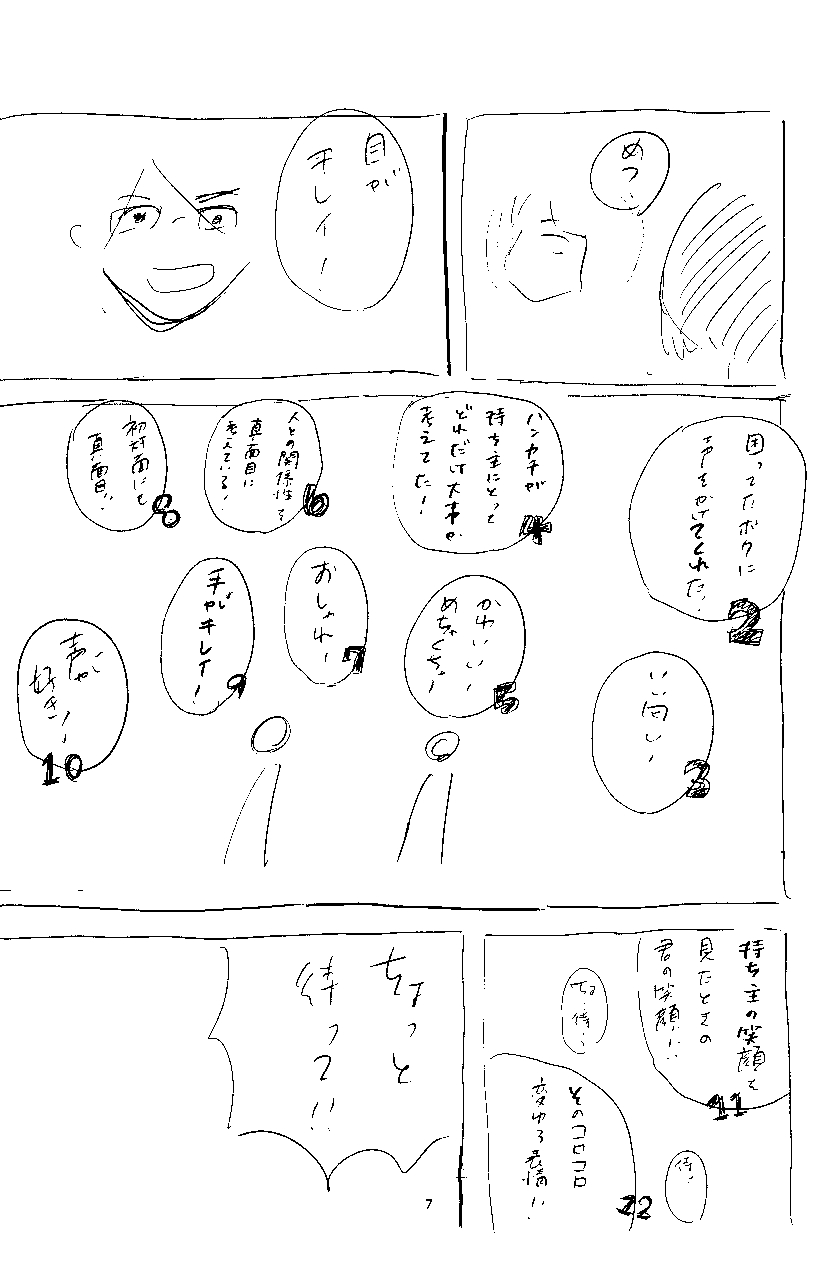 めっ…
目が
キレイ！
困ってたボクに
声をかけてくれた！
2
いい匂い！
3
ハンカチが
持ち主にとって
どれだけ大事か
考えてた！
4
かわいい！
めちゃくちゃ！
5
人との関係性を
真面目に
考えている！
6
おしゃれ！
7
初対面にも
真面目！
8
手がキレイ！
9
声が
好き！
10
持ち主の笑顔を
見たときの
君の笑顔！！
11
ちょ、待、
待、
そのコロコロ
変わる表情！！
12
ちょっと
待って！！
7